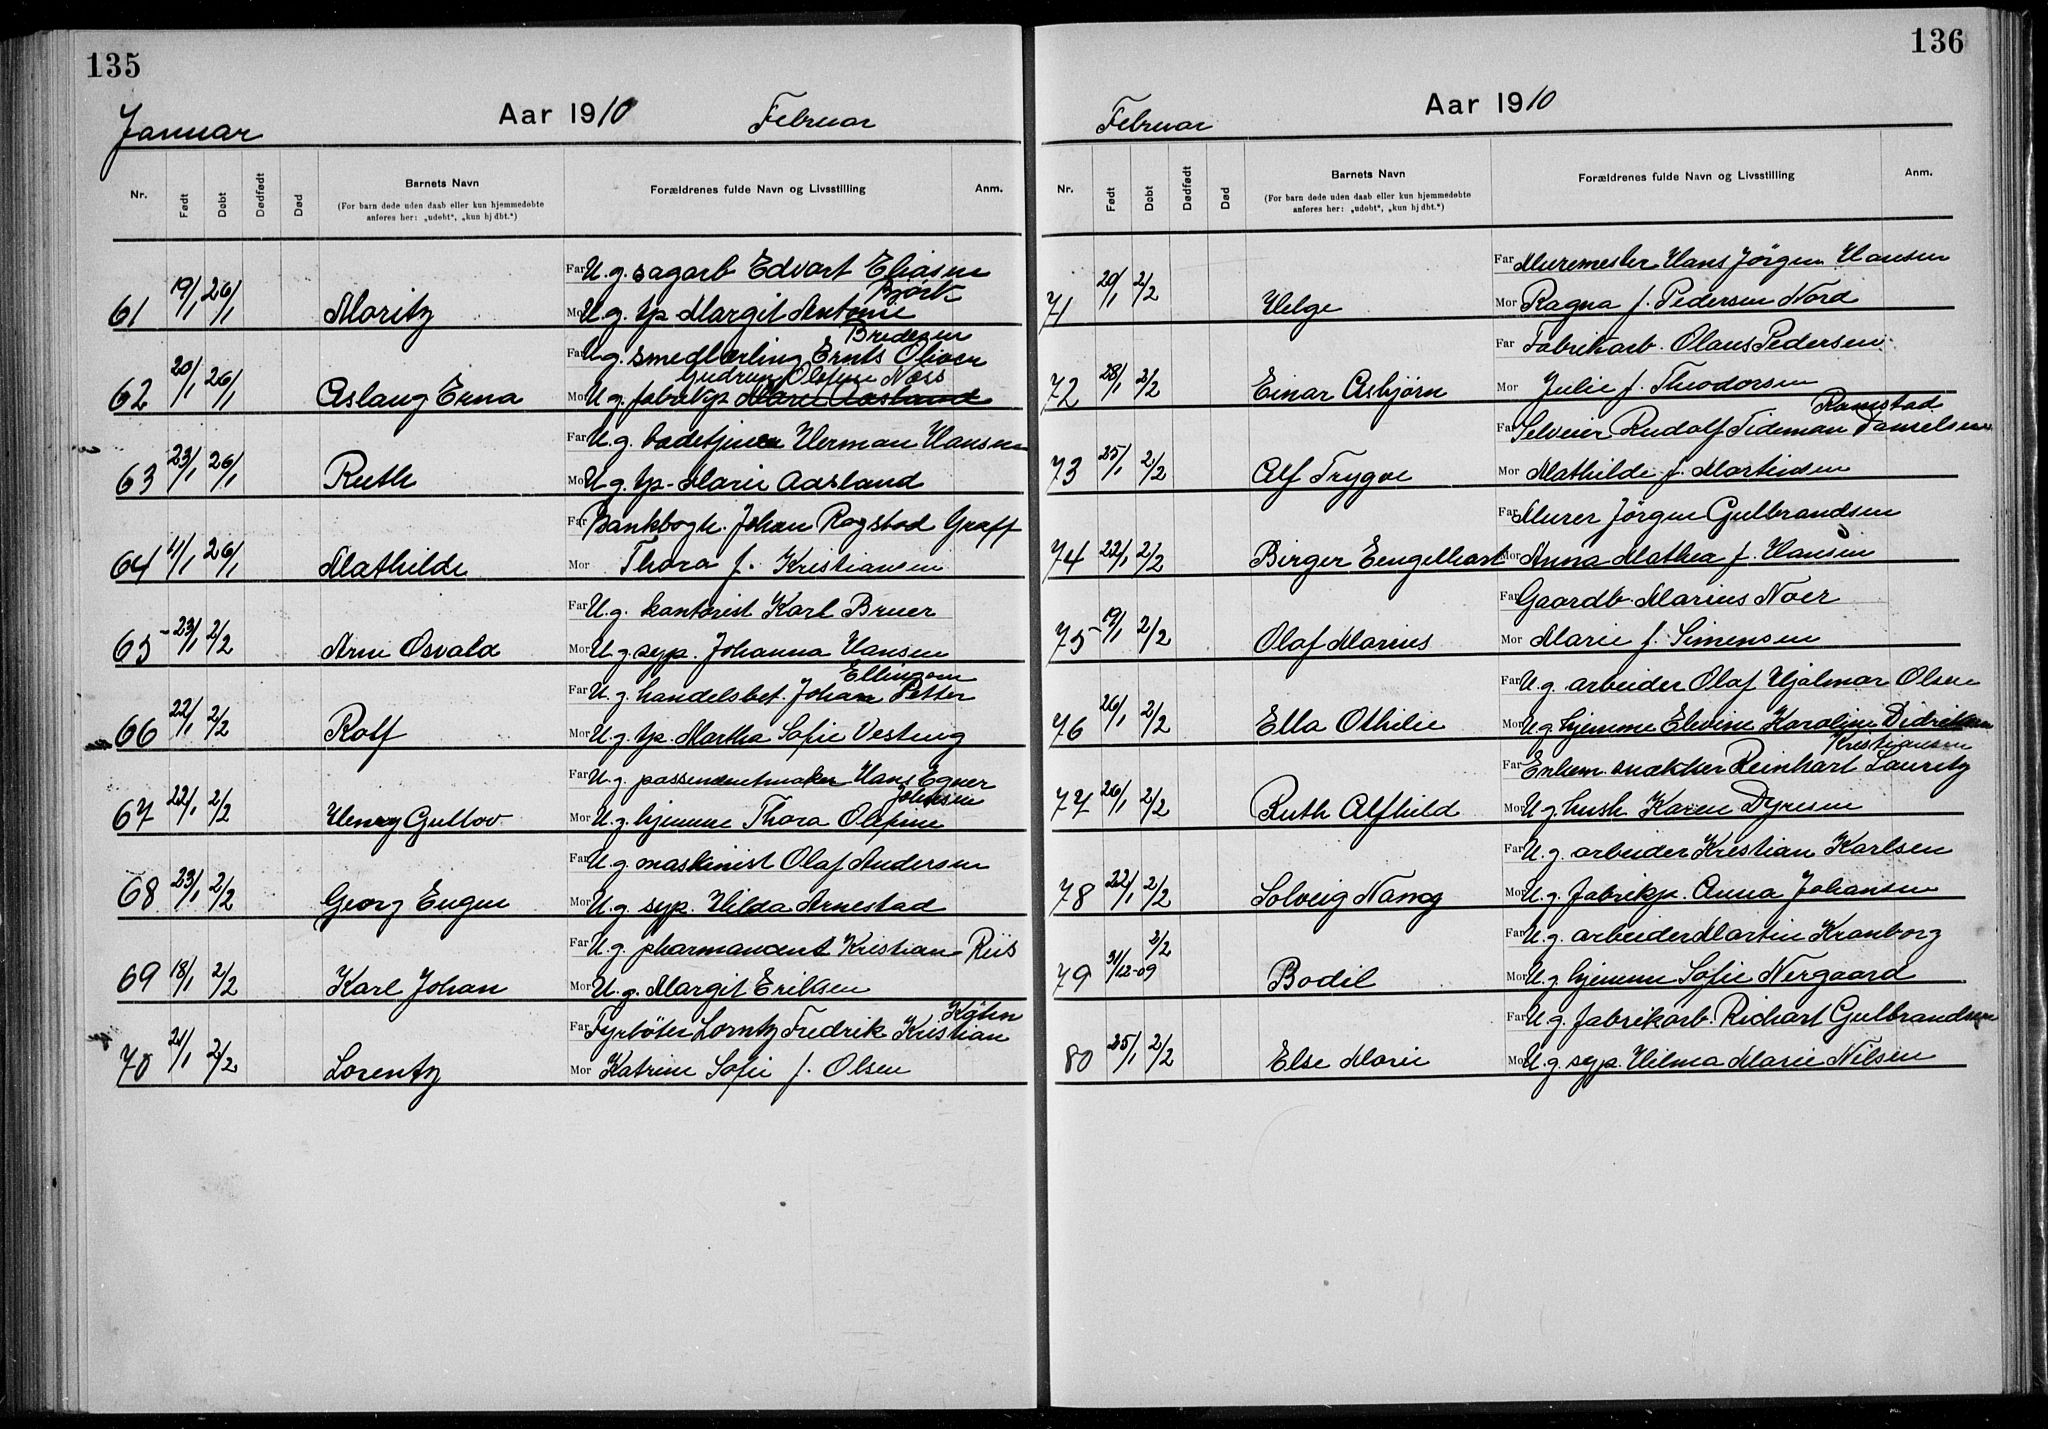 135
Januar Aar 1910 Februar
Nr. Født Døbt Dødfødt Død Barnets Navn Forældrenes fulde Navn og Livsstilling Anm.
(For barn døde uden daab eller kun hjemmedøbte
anføres her: „udøbt“, „kun hj dbt.“)
Far U. g. sagarb Edvart Eliasen
Bjørk
61 19/1 26/1 Moritz Mor U. g. tjp Margit Antonie
Bredesen
Far U. g. smedlærling Ernts Oliver
Gudrun Olefine Næss
62 20/1 26/1 Aslaug Erna Mor U. g. fabrikp Marie Aasland
Far U. g. badetjener Herman Hansen
63 23/1 26/1 Ruth Mor U. g. tjp. Marie Aasland
Far Bankbogh. Johan Rogstad Graff
64 4/1 26/1 Mathilde Mor Thora f. Kristiansen
Far U. g. kontorist Karl Bruer
65 23/1 2/2 Arne Osvald Mor U. g. syp. Johanna Hansen
Ellingsen
Far U. g. handelsbet. Johan Petter
66 22/1 2/2 Rolf Mor U. g. tjp. Martha Sofie Vesteng
Far U. g. possementmaker Hans Egner
Johnsen
67 22/1 2/2 Henry Gustav Mor U. g. hjemme Thora Olefine
Far U. g. maskinist Olaf Andersen
68 23/1 2/2 Georg Eugen Mor U. g. syp. Hilda Arnestad
Far U. g. pharmaceut Kristian Riis
69 18/1 2/2 Karl Johan Mor U. g. Margit Eriksen
Köhn
Far Fyrbøter Lorntz Fredrik Kristian
70 21/1 2/2 Lorentz Mor Katrine Sofie f. Olsen
136
Februar Aar 1910
Nr. Født Døbt Dødfødt Død Barnets Navn Forældrenes fulde Navn og Livsstilling Anm.
(For barn døde uden daab eller kun hjemmedøbte
anføres her: „udøbt“, „kun hj dbt.“)
Far Muremester Hans Jørgen Hansen
71 20/1 2/2 Helge Mor Ragna f. Pedersen Nord
Far Fabrikarb. Olaus Pedersen
72 28/1 2/2 Einar Asbjørn Mor Julie f. Theodorsen
Ramstad
Far Selveier Rudolf Tideman Danielsen
73 25/1 2/2 Alf Trygve Mor Mathilde f. Martinsen
Far Murer Jørgen Gulbrandsen
74 22/1 2/2 Birger Eengelhart Mor Anna Mathea f. Hansen
Far Gaardb. Marius Noer
75 19/1 2/2 Olaf Marius Mor Marie f. Simensen
Far U. g. arbeider Olaf Hjalmar Olsen
76 26/1 2/2 Ella Othilie Mor U. g. hjemme Elevine Karoline Didriksen
Kristiansen
Far Enkem. snekker Reinhart Lauritz
77 26/1 2/2 Ruth Alfhild Mor U. g. hush Karen Dyresen
Far U. g. arbeider Kristian Karlsen
78 22/1 2/2 Solveig Nancy Mor U. g. fabrikp. Anna Johansen
Far U. g. arbeider Martin Kronborg
79 31/12-09 2/2 Bodil Mor U. g. hjemme Sofie Nergaard
Far U. g. fabrikarb. Richart Gulbrandsen
80 25/1 2/2 Else Marie Mor U. g. syp. Hilma Marie Nilsen